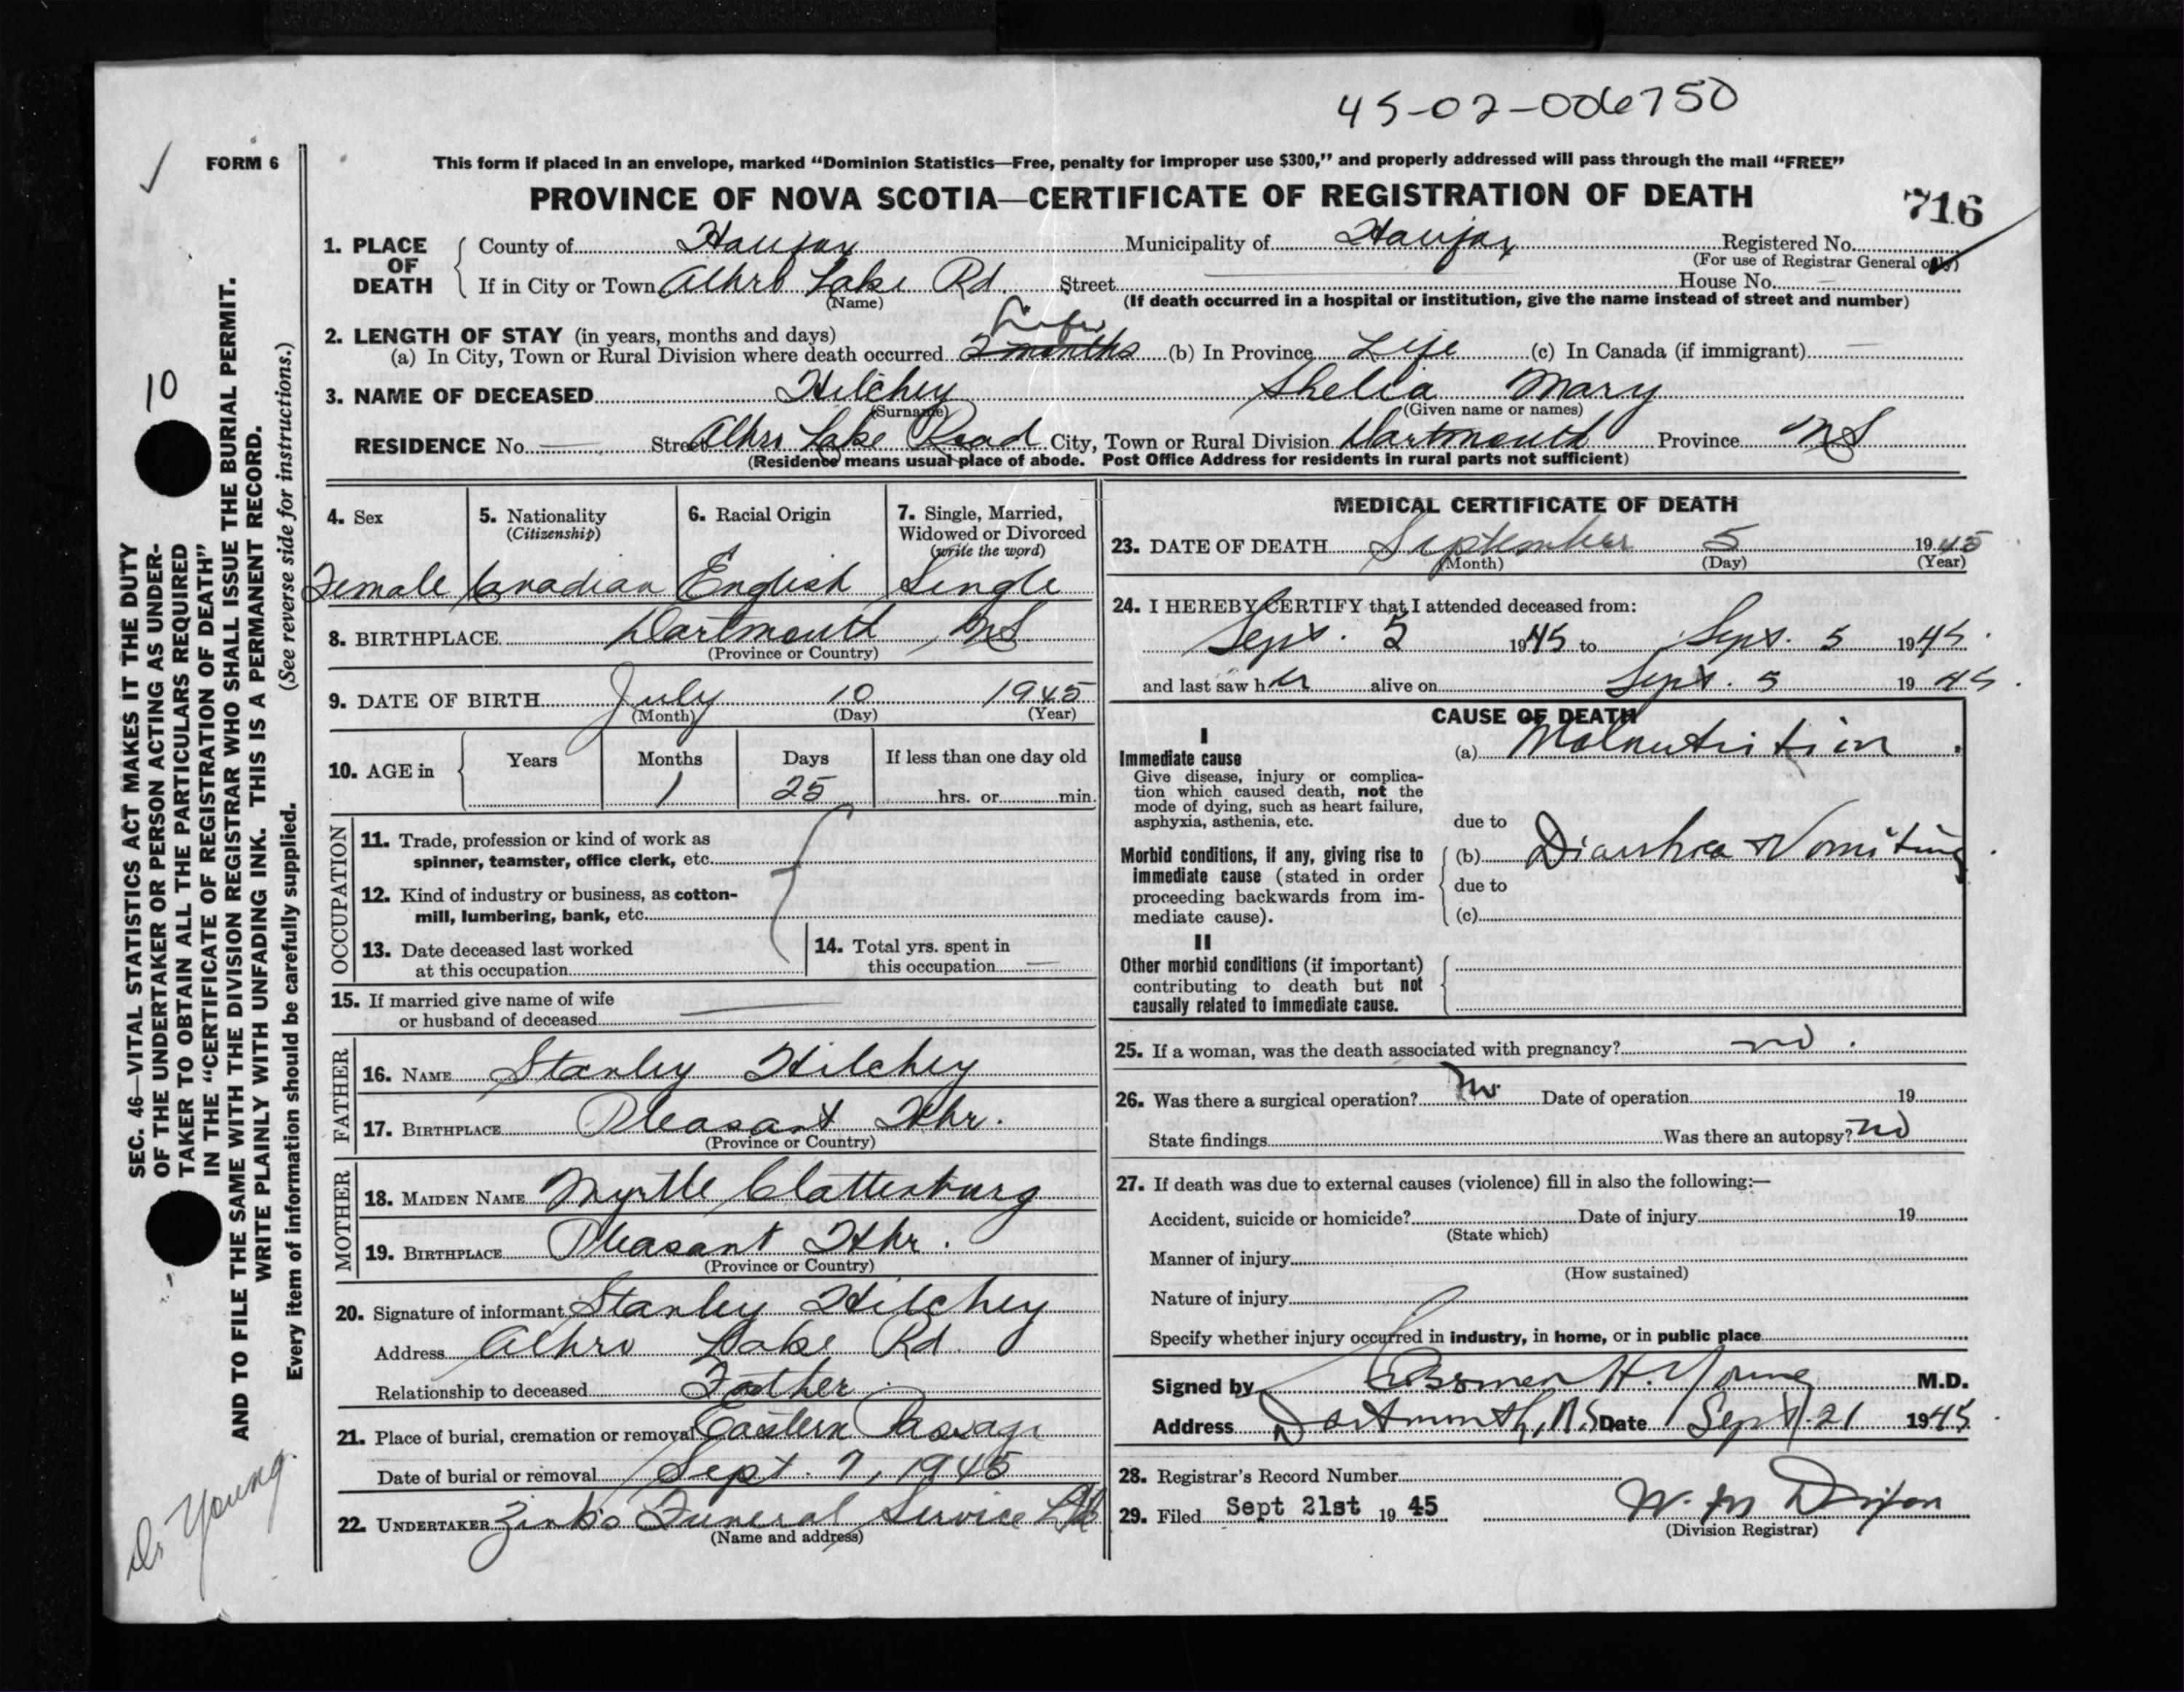 45-02-006750
FORM 6
This form if placed in an envelope, marked “Dominion Statistics—Free, penalty for improper use $300,” and properly addressed will pass through the mail “FREE”
PROVINCE OF NOVA SCOTIA—CERTIFICATE OF REGISTRATION OF DEATH
716
1. PLACE OF DEATH County of Halifax Municipality of Halifax Registered No.
(For use of Registrar General only)
If in City or Town Albro Lake Rd. Street House No.
(Name) (If death occurred in a hospital or institution, give the name instead of street and number)
2. LENGTH OF STAY (in years, months and days) Life
(a) In City, Town or Rural Division where death occurred 2 months (b) In Province Life (c) In Canada (if immigrant)
3. NAME OF DECEASED Hilchey Shelia Mary
(Surname) (Given name or names)
RESIDENCE No. Street Albro Lake Road City, Town or Rural Division Dartmouth Province NS
(Residence means usual place of abode. Post Office Address for residents in rural parts not sufficient)
4. Sex 5. Nationality (Citizenship) 6. Racial Origin 7. Single, Married, Widowed or Divorced (write the word)
Female Canadian English Single
8. BIRTHPLACE Dartmouth NS
(Province or Country)
9. DATE OF BIRTH July 10 1945
(Month) (Day) (Year)
10. AGE in Years Months Days If less than one day old
1 25 hrs. or min.
OCCUPATION
11. Trade, profession or kind of work as
spinner, teamster, office clerk, etc.
12. Kind of industry or business, as cotton-
mill, lumbering, bank, etc.
13. Date deceased last worked
at this occupation
14. Total yrs. spent in
this occupation
15. If married give name of wife
or husband of deceased
FATHER
16. NAME Stanley Hilchey
17. BIRTHPLACE Pleasant Hbr.
(Province or Country)
MOTHER
18. MAIDEN NAME Myrtle Clattenburg
19. BIRTHPLACE Pleasant Hbr.
(Province or Country)
20. Signature of informant Stanley Hilchey
Address Albro Lake Rd.
Relationship to deceased Father
21. Place of burial, cremation or removal Eastern Passage
Date of burial or removal Sept. 7, 1945
22. UNDERTAKER Zink's Funeral Service Ltd
(Name and address)
MEDICAL CERTIFICATE OF DEATH
23. DATE OF DEATH September 5 1945
(Month) (Day) (Year)
24. I HEREBY CERTIFY that I attended deceased from:
Sept. 5 1945 to Sept. 5 1945.
and last saw her alive on Sept. 5 1945.
CAUSE OF DEATH
I
Immediate cause
Give disease, injury or complica-
tion which caused death, not the
mode of dying, such as heart failure,
asphyxia, asthenia, etc.
(a) Malnutrition.
due to
Morbid conditions, if any, giving rise to
immediate cause (stated in order
proceeding backwards from im-
mediate cause).
(b) Diarrhea & Vomiting.
due to
(c)
II
Other morbid conditions (if important)
contributing to death but not
causally related to immediate cause.
25. If a woman, was the death associated with pregnancy? no.
26. Was there a surgical operation? No Date of operation 19
State findings Was there an autopsy? no
27. If death was due to external causes (violence) fill in also the following:—
Accident, suicide or homicide? Date of injury 19
(State which)
Manner of injury
(How sustained)
Nature of injury
Specify whether injury occurred in industry, in home, or in public place
Signed by H. Young M.D.
Address Dartmouth, N.S. Date Sept 21 1945.
28. Registrar's Record Number
29. Filed Sept 21st 19 45 W. M Dixon
(Division Registrar)
10
SEC. 46—VITAL STATISTICS ACT MAKES IT THE DUTY
OF THE UNDERTAKER OR PERSON ACTING AS UNDER-
TAKER TO OBTAIN ALL THE PARTICULARS REQUIRED
IN THE “CERTIFICATE OF REGISTRATION OF DEATH”
AND TO FILE THE SAME WITH THE DIVISION REGISTRAR WHO SHALL ISSUE THE BURIAL PERMIT.
WRITE PLAINLY WITH UNFADING INK. THIS IS A PERMANENT RECORD.
Every item of information should be carefully supplied. (See reverse side for instructions.)
Dr Young.